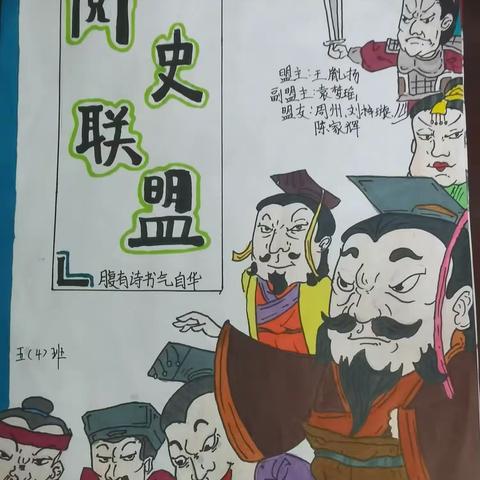 阅
史
联
盟
腹有诗书气自华
盟主：王胤扬
副盟主：袁梦瑶
盟友：周州、刘梓璇
陈家辉
五（4）班